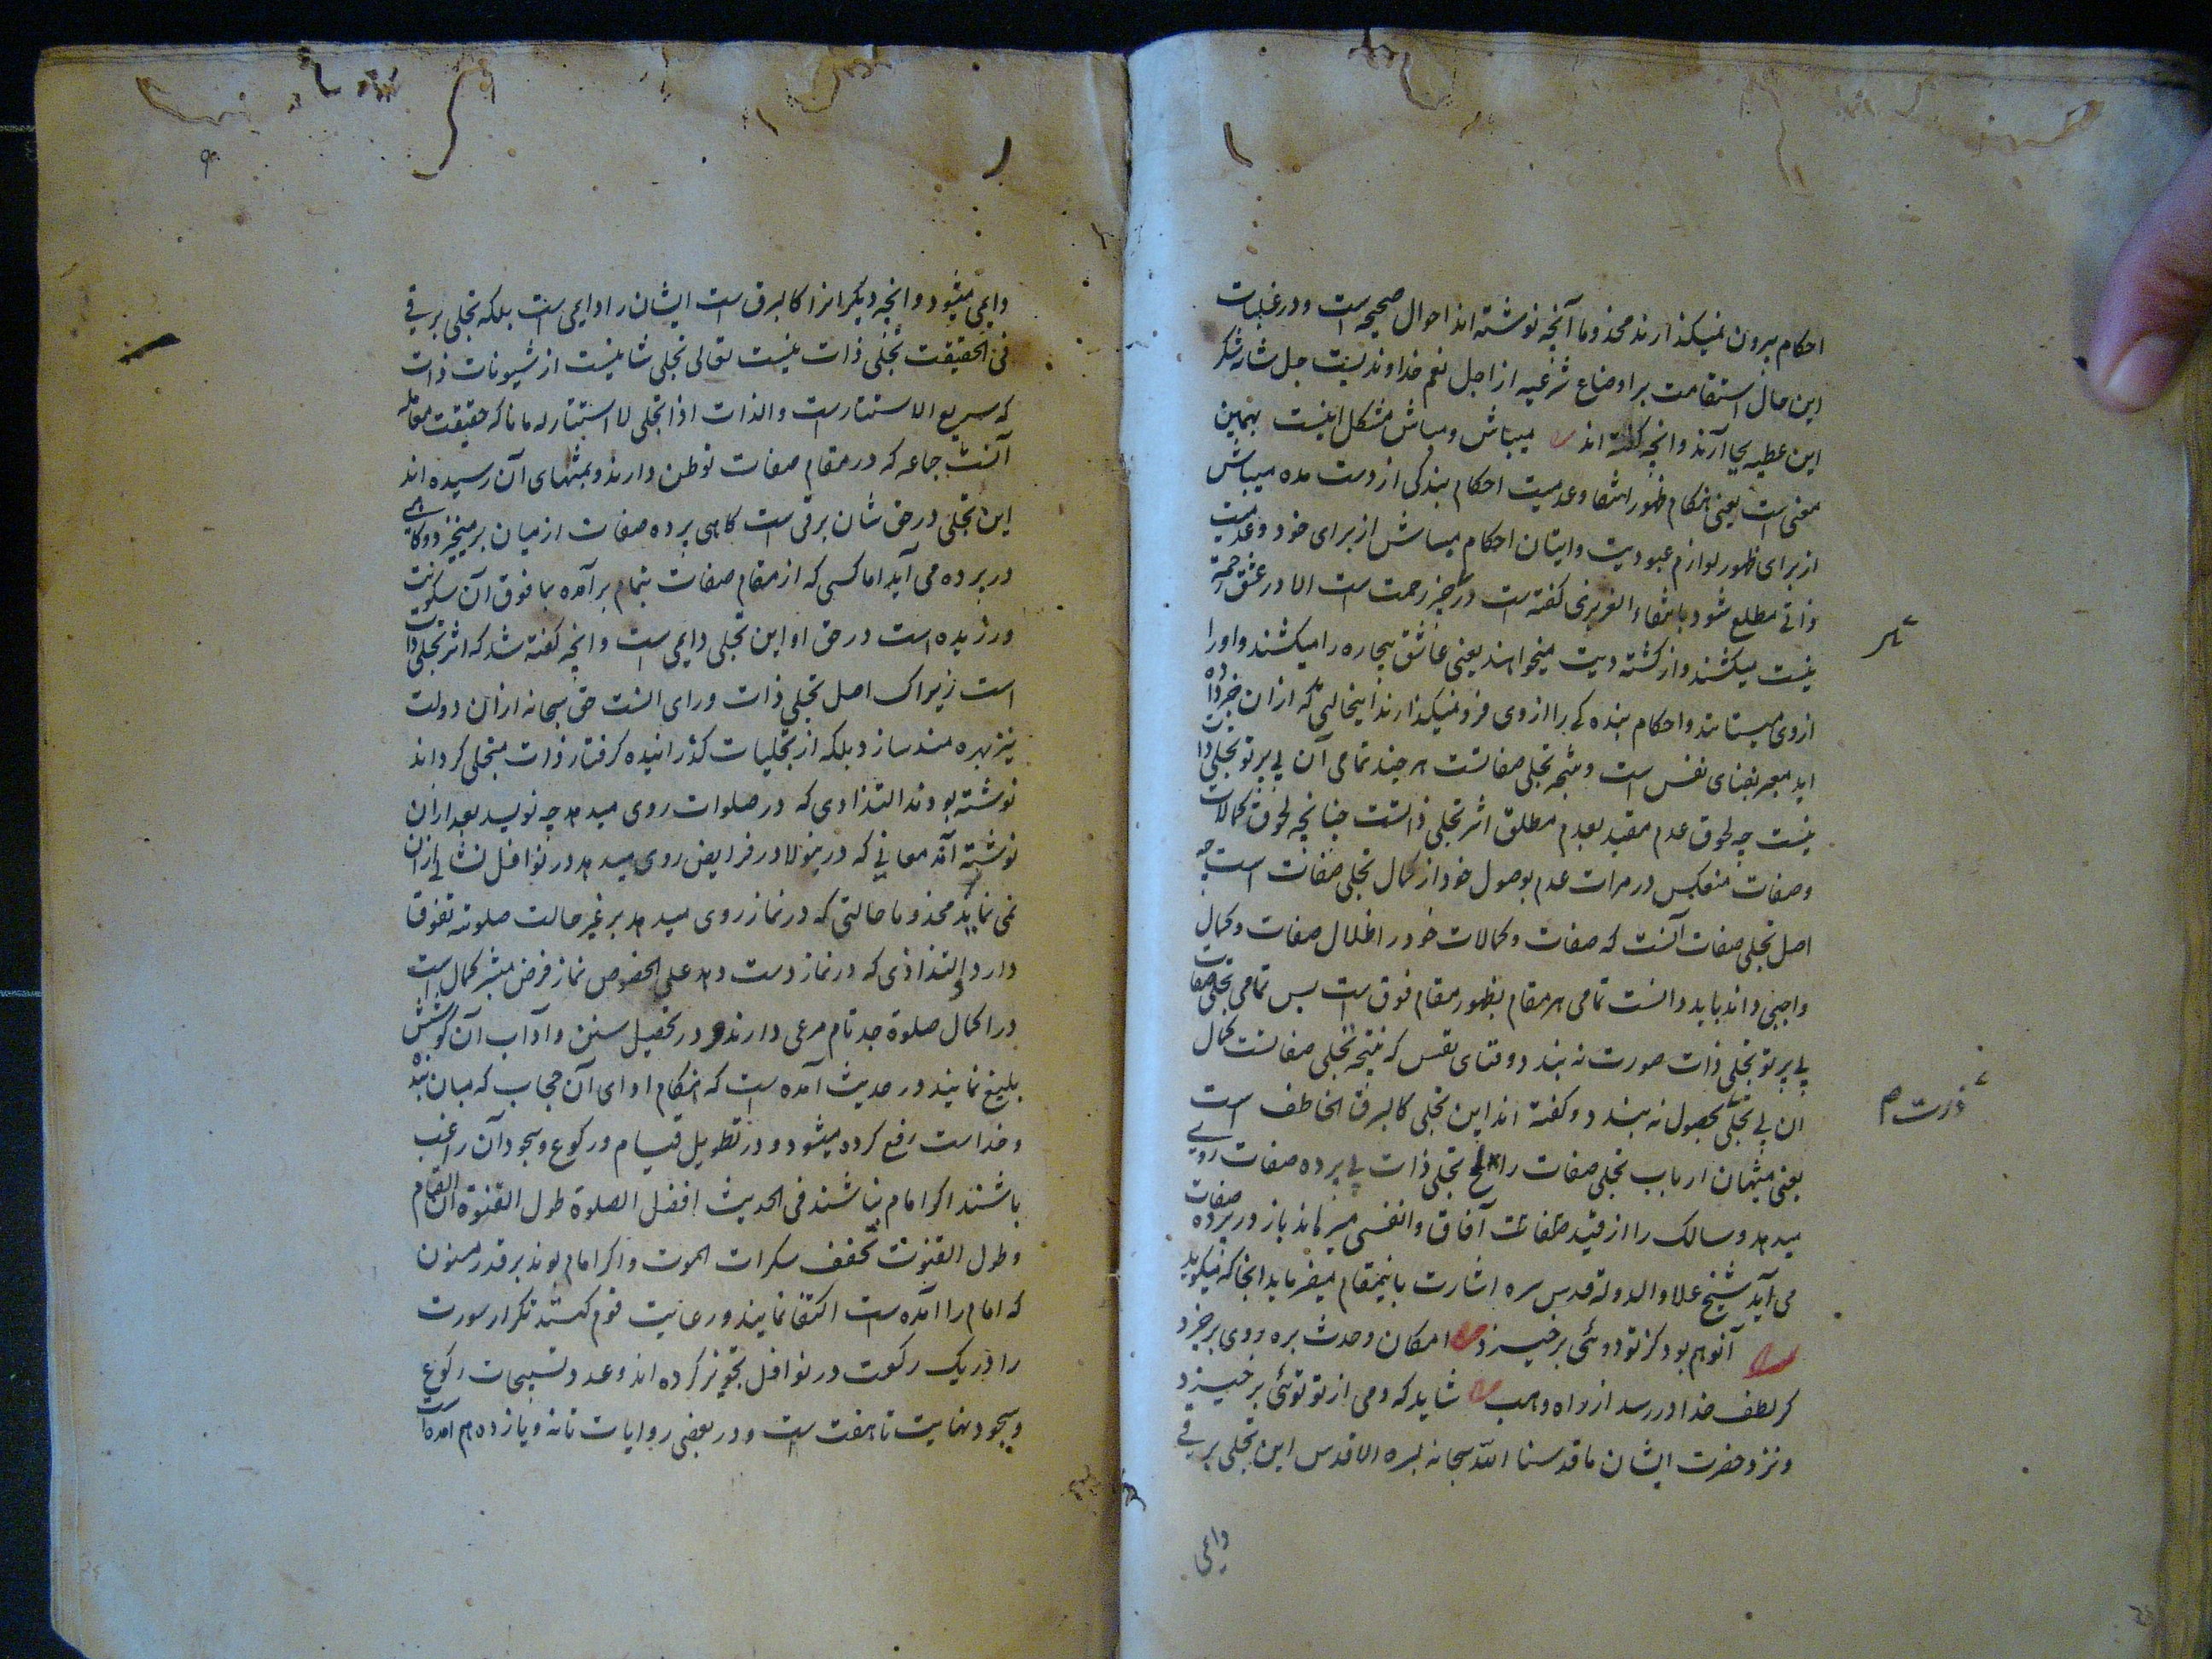 احکام بیرون نمیکذارند مخدوما آنچه نوشته اند احوال صحیحه است و در غلبات
این حال استقامت بر اوضاع شرعیه از اجل نعم خداوندیست جل شانه شکر
این عطیه بجا آرند وانچه کفته اند میباش و مباش مشکل اینست بهمین
معنی است یعنی هنکام ظهور انتفا و عدمیت احکام بندکی از دست مده میباش
از برای ظهور لوازم عبودیت واتیان احکام مباش از برای خود و عدمیت
ذاتی مطلع شود بانتفاء العزیزی کفته است در هر چیز رحمت است الا در عشق رحمت
نیست میکشند و از کشته دیت میخواهند یعنی عاشق بیچاره را میکشند و اورا
ازوی میستانند و احکام بنده کی را ازوی فرو نمیکذارند اینحالتی که ازان خبر داده
اید معبر بفنای نفس است و نتیجه تجلی صفاتست هر چند تمامی آن بی پرتو تجلی ذات
نیست چه لحوق عدم مقید بعدم مطلق اثر تجلی ذاتست چنانچه لحوق کمالات
وصفات منعکس در مرات عدم بوصول خود از کمال تجلی صفات است چه
اصل تجلی صفات آنست که صفات و کمالات خود را ظلال صفات و کمال
واجبی داند باید دانست تمامی هر مقام بظهور مقام فوق است پس تمامی تجلی صفات
بی پرتو تجلی ذات صورت نه بندد و فنای نفس که نتیجه تجلی صفاتست کمال
ان بی تجلی بحصول نه بندد و کفته اند این تجلی کالبرق الخاطف است
یعنی منتهیان ارباب تجلی صفات را تجلی ذات بی پرده صفات روی
میدهد و سالک را از قید آفاق وانفس میرهاند باز در پرده صفات
می آید شیخ علاو الدوله قدس سره اشارت باینمقام میفرماید انجا که میکوید
آنوهم بود کز تو دوئی برخیزد امکان وحدت بره روی برخیزد
کر لطف خدا در رسد از راه وهب شاید که دمی از تو توئی برخیزد
ونزد حضرت ایشان ما قدسنا الله سبحانه بسره الاقدس این تجلی برقی
ذات ص
دایمی
دایمی میشود وانچه دیکرانرا کالبرق است ایشان را دایمی است بلکه تجلی برقی
فی الحقیقت تجلی ذات نیست تعالی تجلی شانیست از شیونات ذات
که سریع الاستتار است والذات اذا تجلی لا استتار له مانا که حقیقت معامله
آنست جماعه که در مقام صفات توطن دارند و بمنتهای آن رسیده اند
این تجلی در حق شان برقی است کاهی پرده صفات از میان برمیخیزد و کاهی
در پرده می آید اما کسی که از مقام صفات بتمام برآمده بما فوق آن سکونت
ورزیده است در حق او این تجلی دایمی است وانچه کفته شد که اثر تجلی ذات
است زیراک اصل تجلی ذات ورای انست حق سبحانه ازان دولت
نیز بهره مند سازد بلکه از تجلیات کذرانیده کرفتار ذات متجلی کرداند
نوشته بودند التذاذی که در صلوات روی میدهد چه نویسد بعد ازان
نوشته آمد معانی که درینولا در فرایض روی میدهد در نوافل نشانی ازان
نمی نماید مخدوما حالتی که در نماز روی میدهد بر غیر حالت صلوته تفوق
دارد والتذاذی که در نماز دست دهد علی الخصوص نماز فرض مبشر کمال است
در اکمال صلوة جد تام مرعی دارند و در تحصیل سنن و آداب آن کوشش
بلیغ نمایند در حدیث آمده است که هنکام ادای آن حجاب که میان بنده
وخداست رفع کرده میشود و در تطویل قیام و رکوع و سجود آن راغب
باشند اکر امام نباشند فی الحدیث افضل الصلوة طول القنوة ای القیام
وطول القنوت تخفف سکرات الموت واکر امام بوند بر قدر مسنون
که امام را آمده است اکتفا نمایند و رعایت قوم کنند تکرار سورت
را در یک رکعت در نوافل تجویز کرده اند و عدد تسبیحات رکوع
وسجود نهایت تا هفت است و در بعضی روایات تا نه و یازده هم آمده است